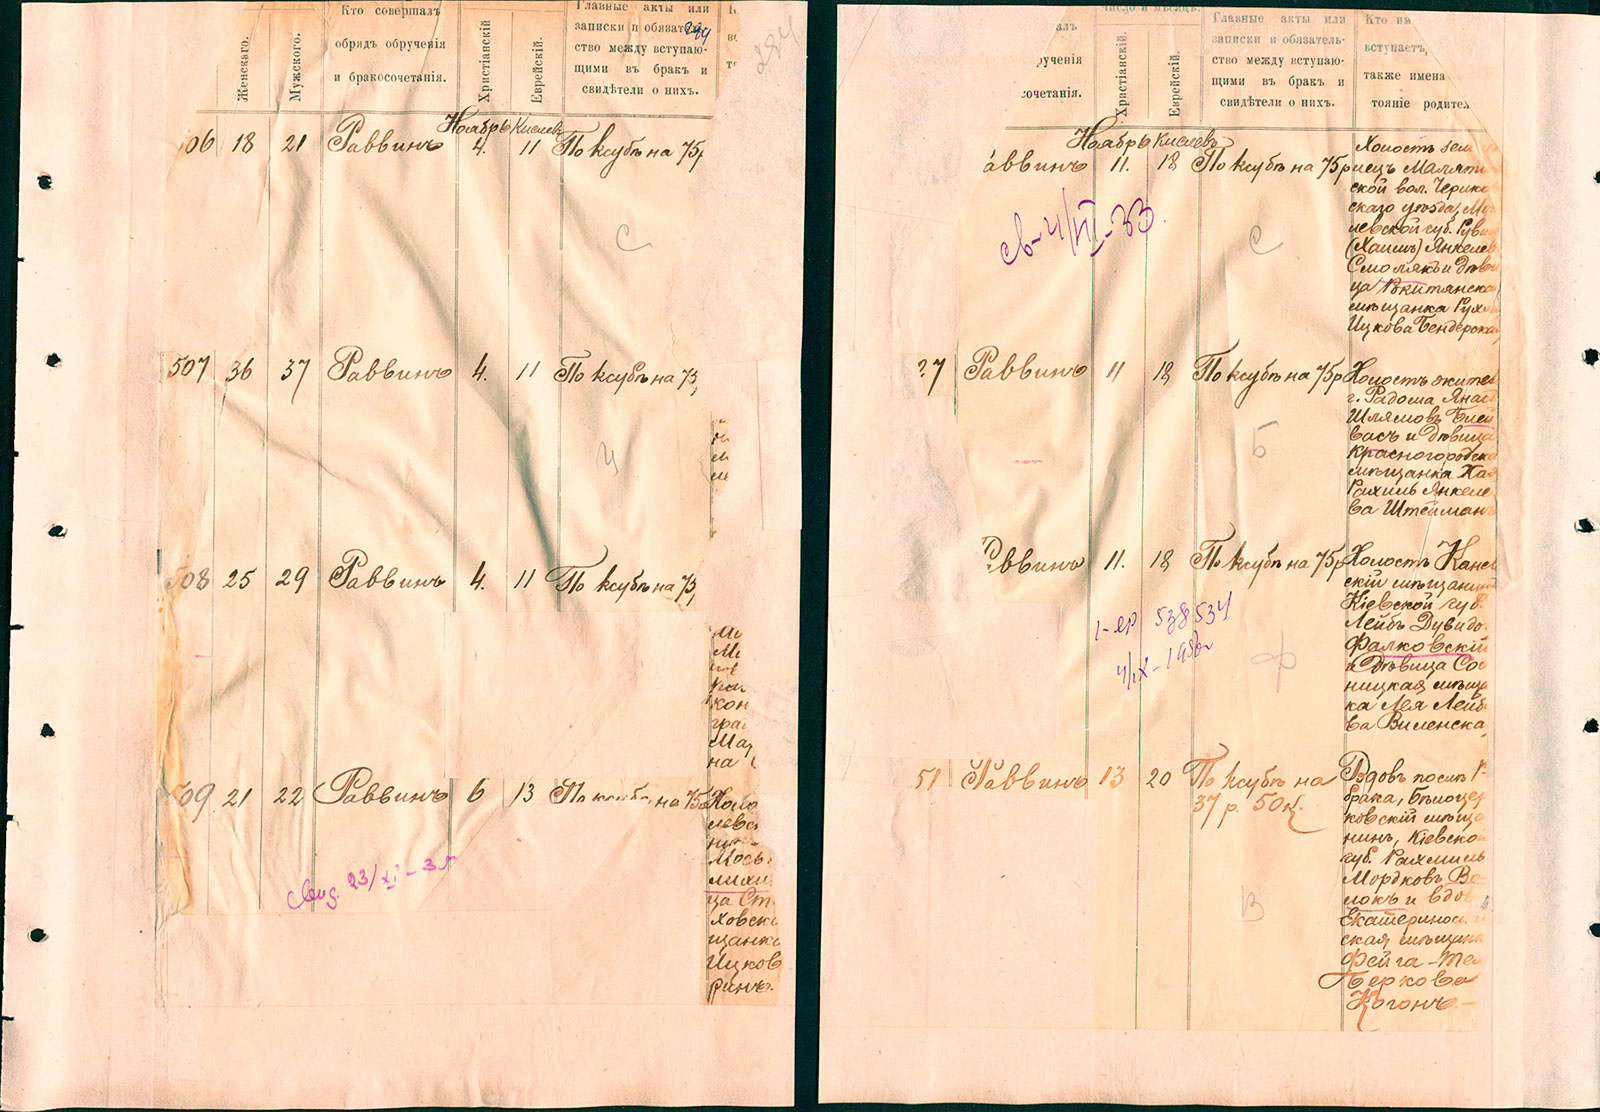 Женскаго.
Мужского.
Кто совершалъ
обрядъ обрученія
и бракосочетанія.
Христіанскій
Еврейскій.
Главные акты или
записки и обязатель
ство между вступаю-
щими въ бракъ и
свидѣтели о нихъ.
294
284
Ноябрь Кислевъ
506 18 21 Раввинъ 4. 11 По ксубѣ на 75р
С
507 36 37 Раввинъ 4. 11 По ксубѣ на 75
508 25 29 Раввинъ 4. 11 По ксубѣ на 75
кон
гра
Мар
на
509 21 22 Раввинъ 6 13 По ксубѣ на 75
Холо
левск
Мось
лихи
ца Ст
ховска
щанка
Ицков
ринъ.
23/XI-35
алъ
ручения
сочетанія.
Число и мѣсяцъ.
Христіанскій.
Еврейскій.
Главные акты или
записки и обязатель-
ство между вступаю-
щими въ бракъ и
свидѣтели о нихъ.
Кто им
вступаетъ,
также имена
тояніе родител
Ноябрь Кислевъ
аввинъ 11. 18 По ксубѣ на 75р
Холостъ зем
лецъ Малят
ской вол. Черико
скаго уѣзда, Мо
левской губ. Рувим
(Хаимъ) Янкелев
Смолякъ и дѣви
ца Ракитянска
мѣщанка Рухл
Ицкова Бендерска
св-4/VII-33
С
27 Раввинъ 11 18 По ксубѣ на 75р
Холостъ жител
г. Радома
Шлямовъ Блей
васъ и дѣвица
Красногородска
мѣщанка Хая
Рахиль Янкеле
ва Штейманъ
Б
Раввинъ 11. 18 По ксубѣ на 75р
Холостъ Канев
скій мѣщанинъ
Кіевской губ.
Лейбъ Дувидо
Фалковскій
и Дѣвица Сос
ницкая мѣща
ка Лея Лейб
ва Виленска
538534
4/IX-1950г
Ф
51 Раввинъ 13 20 По ксубѣ на
37 р. 50 к.
Вдовъ послѣ 1
брака, Бѣлоцер
ковскій мѣща
нинъ, Кіевско
губ. Рахмиль
Мордковъ Во
локъ и вдова
Екатеринос
ская мѣщанка
Фейга-
Беркова
Когонъ
В